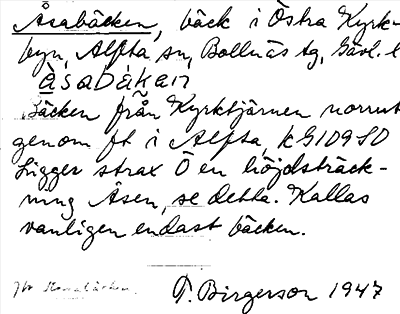 Åsabäcken, bäck i Östra Kyrk-
byn, Alfta sn, Bollnäs tg, Gävl. l
åsabäkan
Bäcken från Kyrktjärnen norrut
genom ft i Alfta, kG1D9SO
Ligger strax Ö en höjdsträck-
ning Åsen, se detta. Kallas
vanligen endast bäcken.
Jfr
T. Birgerson 1947